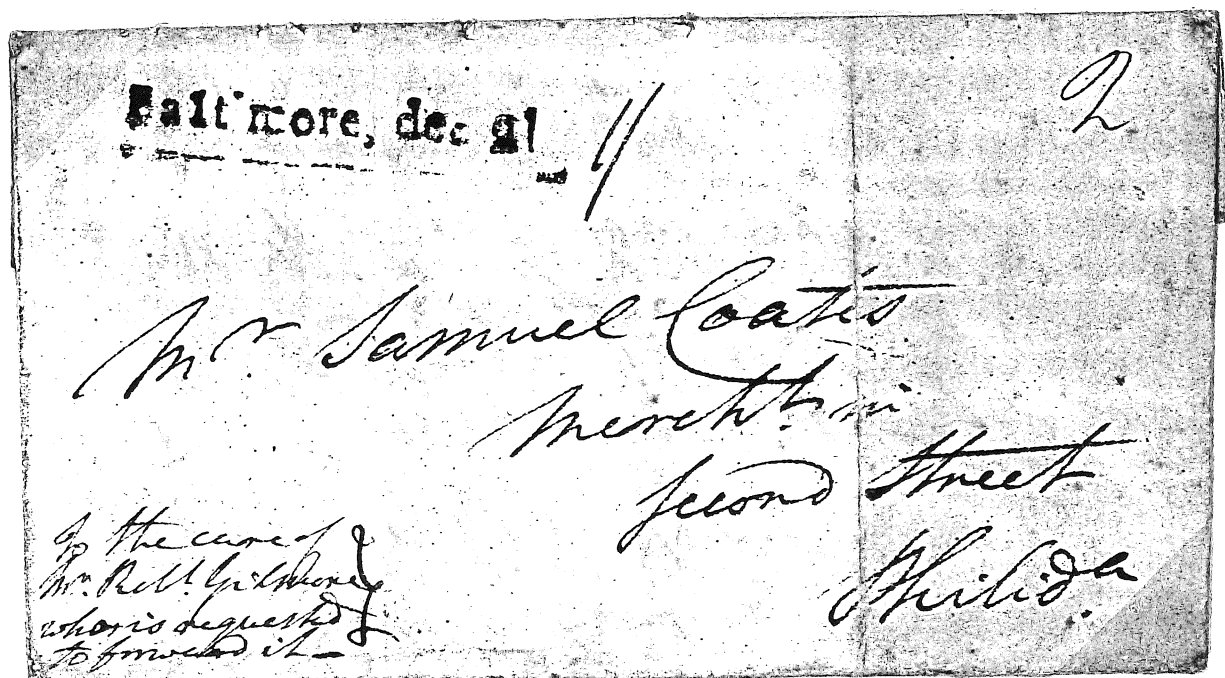 Baltimore, dec 21
2
Mr. Samuel Coates
Mercht. in
Second Street
Philida.
To the care of
Mr. Robt. Gilmore
who is requested
to forward it —